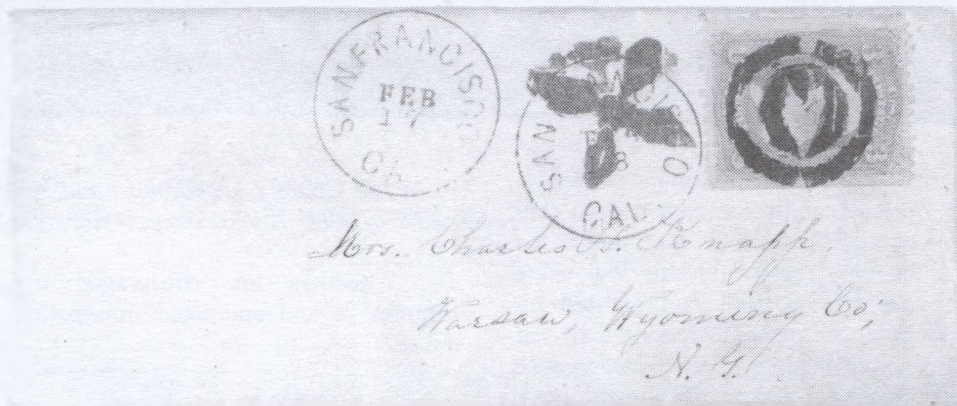 SAN FRANCISCO
FEB
17
CAL
SAN
8
CAL.
Mrs. Charles B. Knapp,
Warsaw, Wyoming Co;
N. Y.